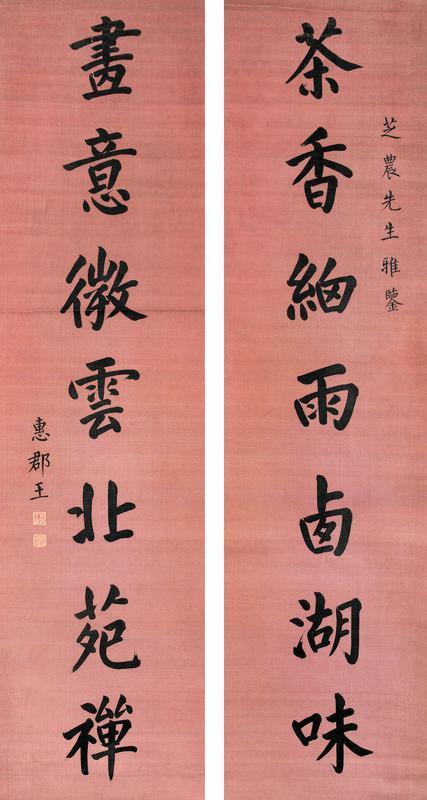 芝農先生雅鑒
茶香細雨卥湖味
畫意微雲北苑禪
惠郡王